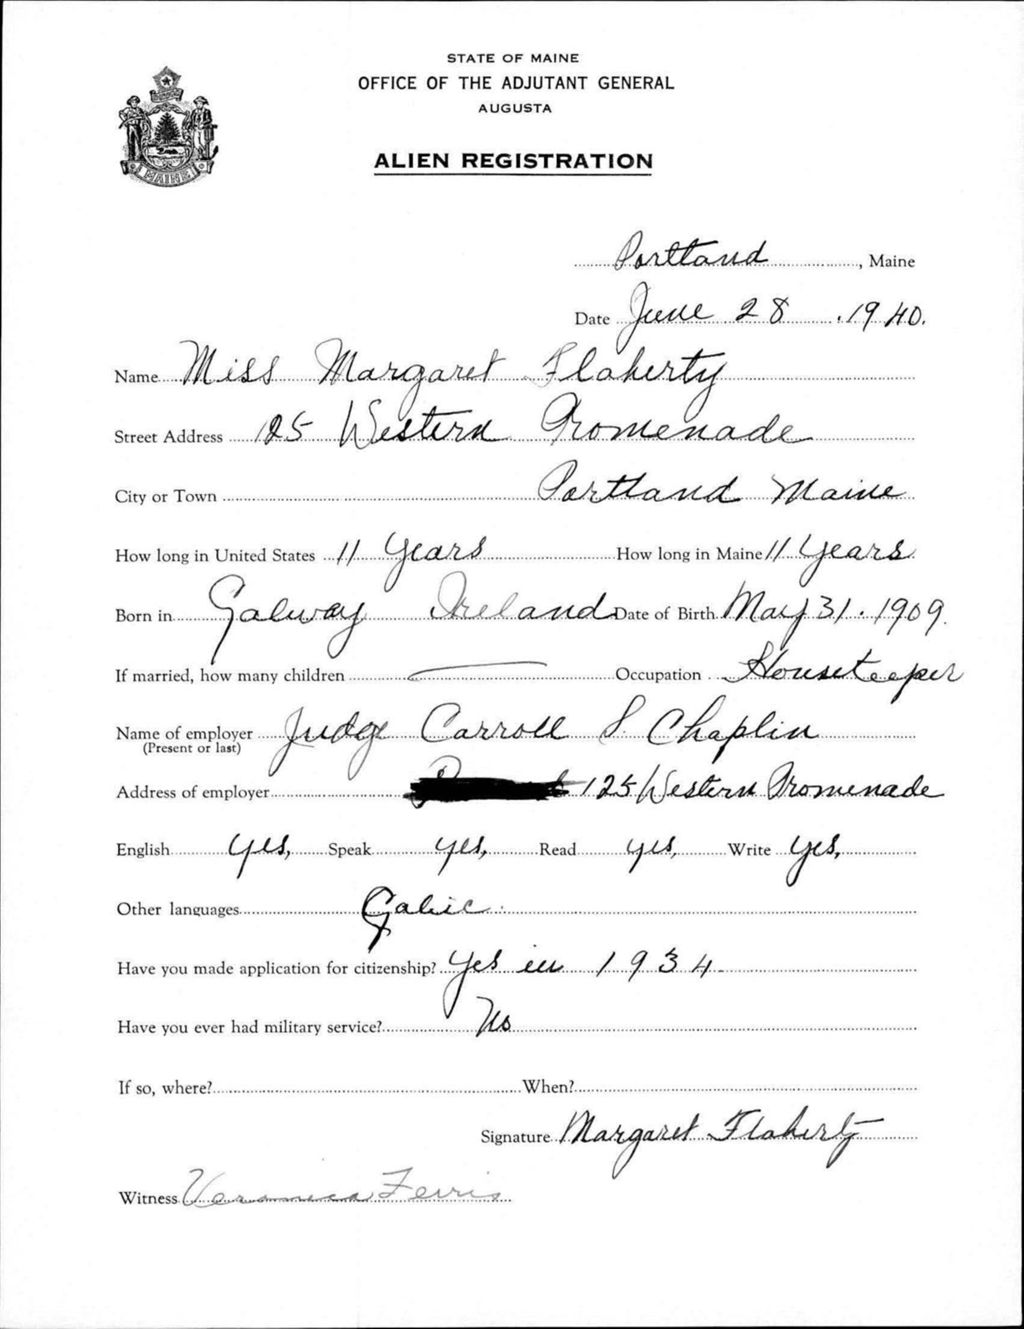 STATE OF MAINE
OFFICE OF THE ADJUTANT GENERAL
AUGUSTA
ALIEN REGISTRATION
MAINE
Portland, Maine
Date June 28, 1940.
Name Miss Margaret Flaherty
Street Address 125 Western Promenade
City or Town Portland Maine
How long in United States 11 Years How long in Maine 11 Years
Born in Galway Ireland Date of Birth May 31. 1909.
If married, how many children — Occupation Housekeeper
Name of employer Judge Carroll S. Chaplin
(Present or last)
Address of employer 125 Western Promenade
English yes, Speak yes, Read yes, Write yes,
Other languages Galic.
Have you made application for citizenship? Yes in 1934.
Have you ever had military service? No
If so, where? When?
Signature Margaret Flaherty
Witness Veronica Ferris